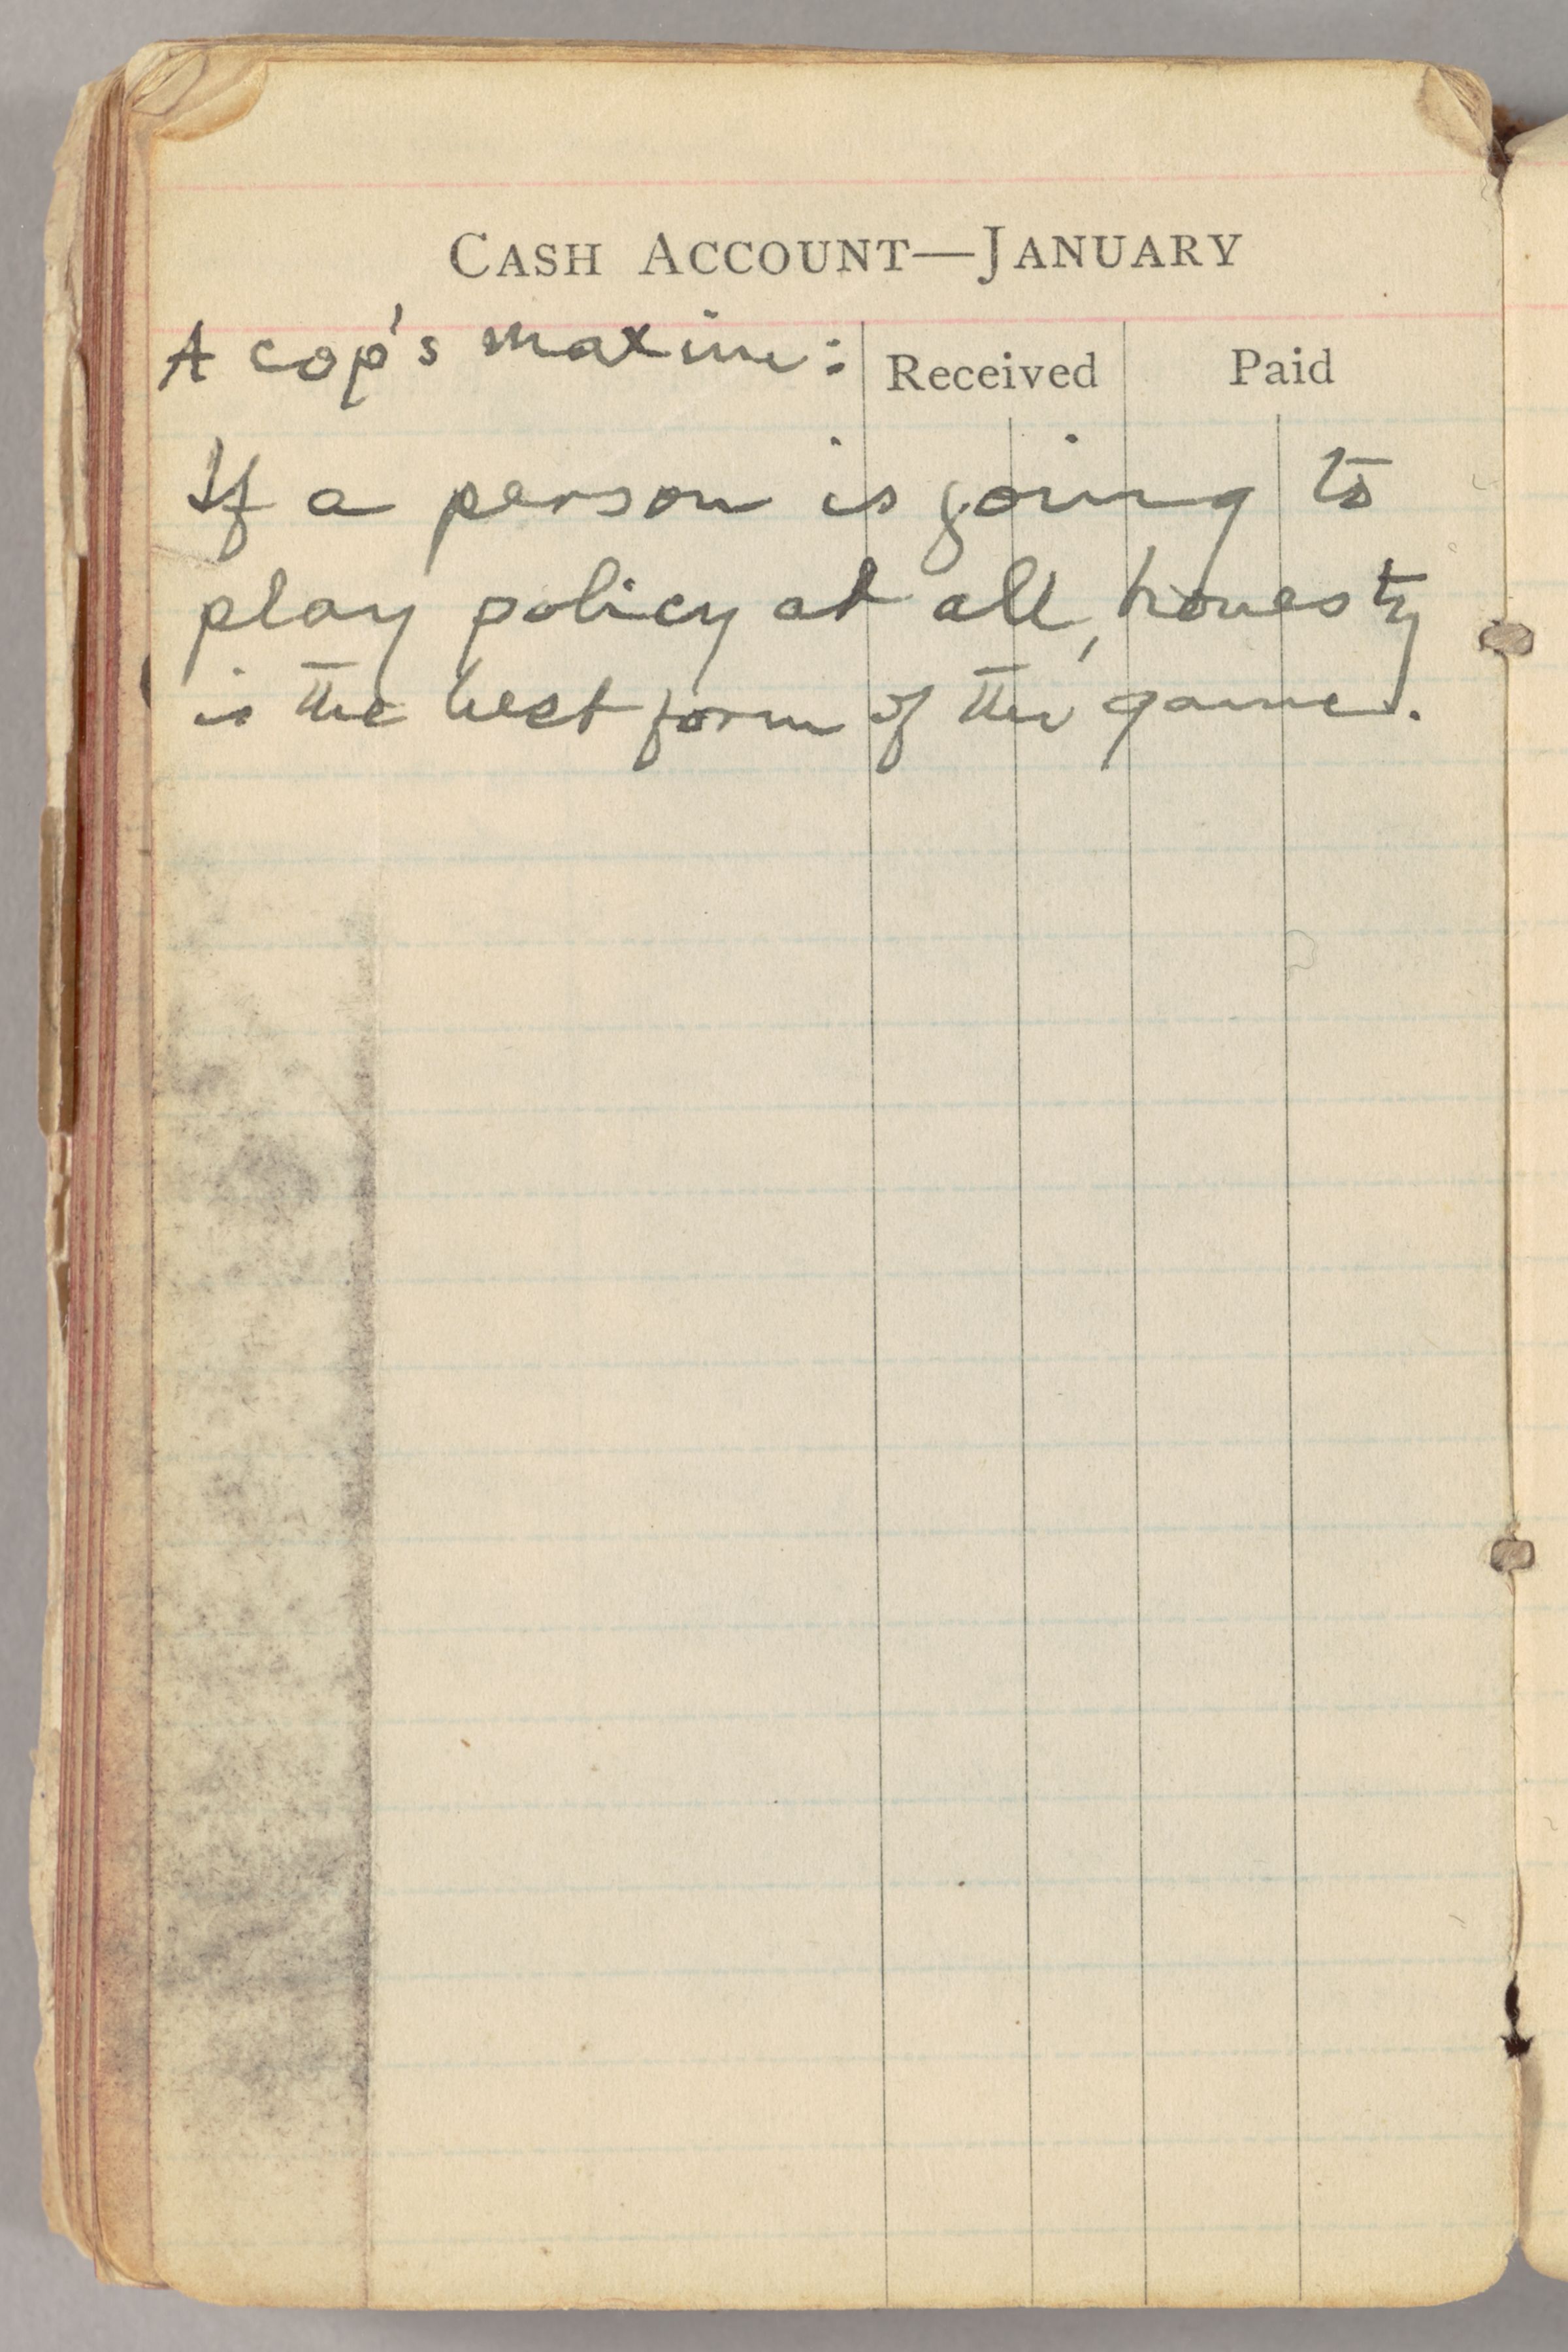 CASH ACCOUNT—JANUARY
A cop's maxim:
Received Paid
If a person is going to
play policy at all, honesty
is the best form of the game.